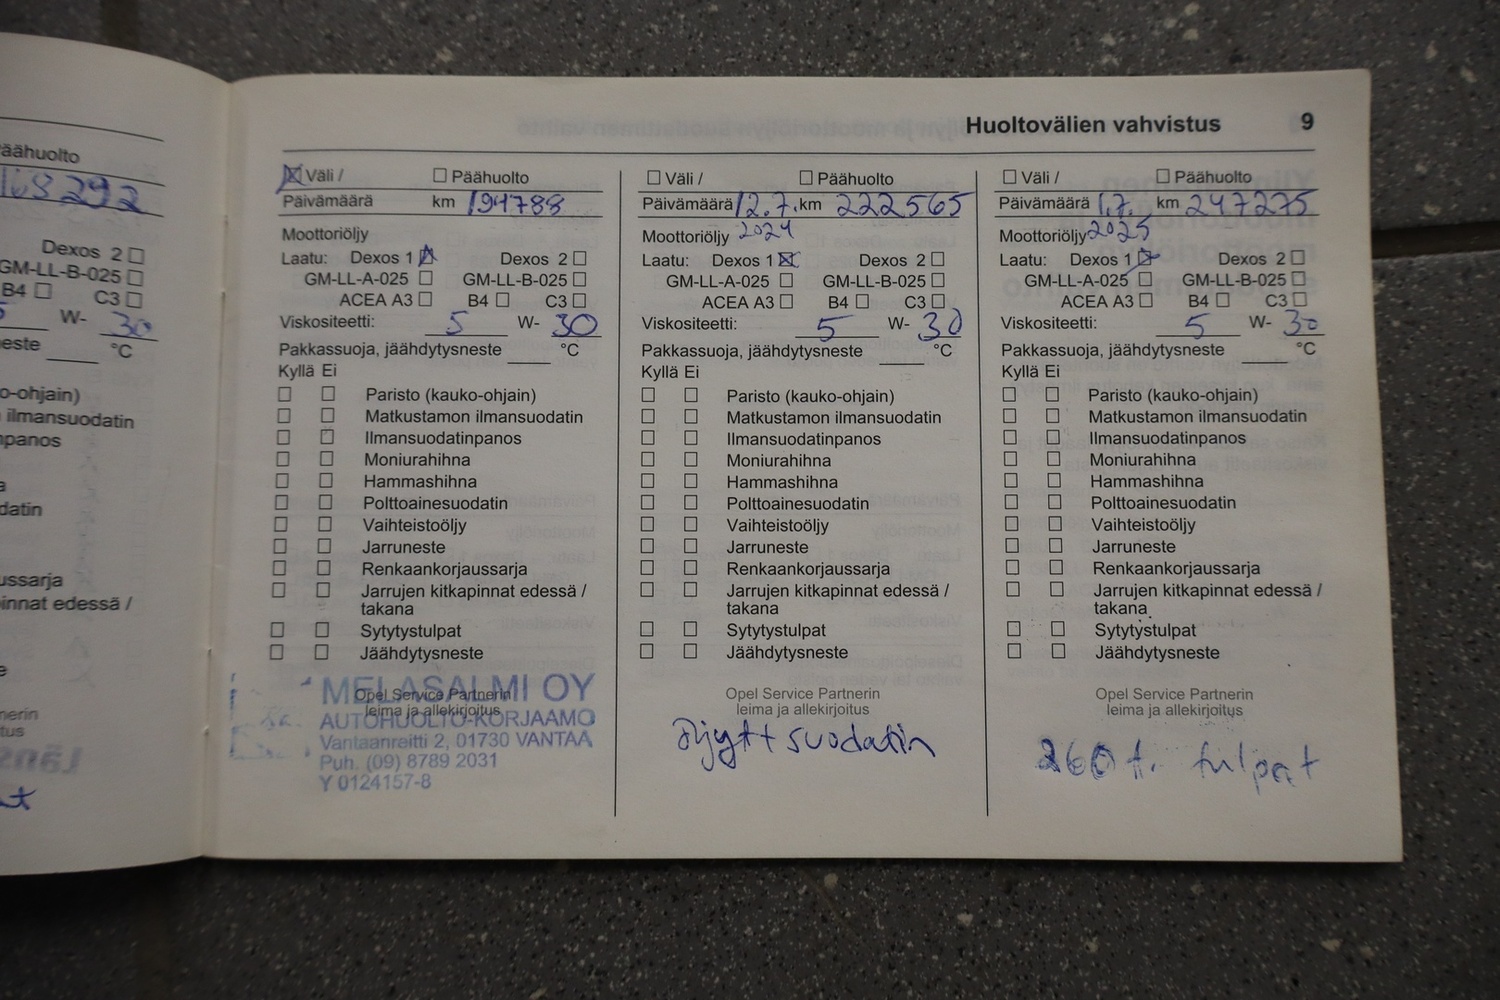 äähuolto
168292
Dexos 2
GM-LL-B-025
B4 C3
W- 30
este °C
o-ohjain)
ilmansuodatin
npanos
datin
ussarja
innat edessä /
Huoltovälien vahvistus 9
Väli / Päähuolto
Päivämäärä km 194788
Moottoriöljy
Laatu: Dexos 1 Dexos 2
GM-LL-A-025 GM-LL-B-025
ACEA A3 B4 C3
Viskositeetti: 5 W- 30
Pakkassuoja, jäähdytysneste °C
Kyllä Ei
Paristo (kauko-ohjain)
Matkustamon ilmansuodatin
Ilmansuodatinpanos
Moniurahihna
Hammashihna
Polttoainesuodatin
Vaihteistoöljy
Jarruneste
Renkaankorjaussarja
Jarrujen kitkapinnat edessä /
takana
Sytytystulpat
Jäähdytysneste
Opel Service Partnerin
leima ja allekirjoitus
MELASALMI OY
AUTOHUOLTO-KORJAAMO
Vantaanreitti 2, 01730 VANTAA
Puh. (09) 8789 2031
Y 0124157-8
Väli / Päähuolto
Päivämäärä 12.7. km 222565
Moottoriöljy 2024
Laatu: Dexos 1 Dexos 2
GM-LL-A-025 GM-LL-B-025
ACEA A3 B4 C3
Viskositeetti: 5 W- 30
Pakkassuoja, jäähdytysneste °C
Kyllä Ei
Paristo (kauko-ohjain)
Matkustamon ilmansuodatin
Ilmansuodatinpanos
Moniurahihna
Hammashihna
Polttoainesuodatin
Vaihteistoöljy
Jarruneste
Renkaankorjaussarja
Jarrujen kitkapinnat edessä /
takana
Sytytystulpat
Jäähdytysneste
Opel Service Partnerin
leima ja allekirjoitus
öljyt+suodatin
Väli / Päähuolto
Päivämäärä 1.7. km 247275
Moottoriöljy 2025
Laatu: Dexos 1 Dexos 2
GM-LL-A-025 GM-LL-B-025
ACEA A3 B4 C3
Viskositeetti: 5 W- 30
Pakkassuoja, jäähdytysneste °C
Kyllä Ei
Paristo (kauko-ohjain)
Matkustamon ilmansuodatin
Ilmansuodatinpanos
Moniurahihna
Hammashihna
Polttoainesuodatin
Vaihteistoöljy
Jarruneste
Renkaankorjaussarja
Jarrujen kitkapinnat edessä /
takana
Sytytystulpat
Jäähdytysneste
Opel Service Partnerin
leima ja allekirjoitus
260 t. tulpat